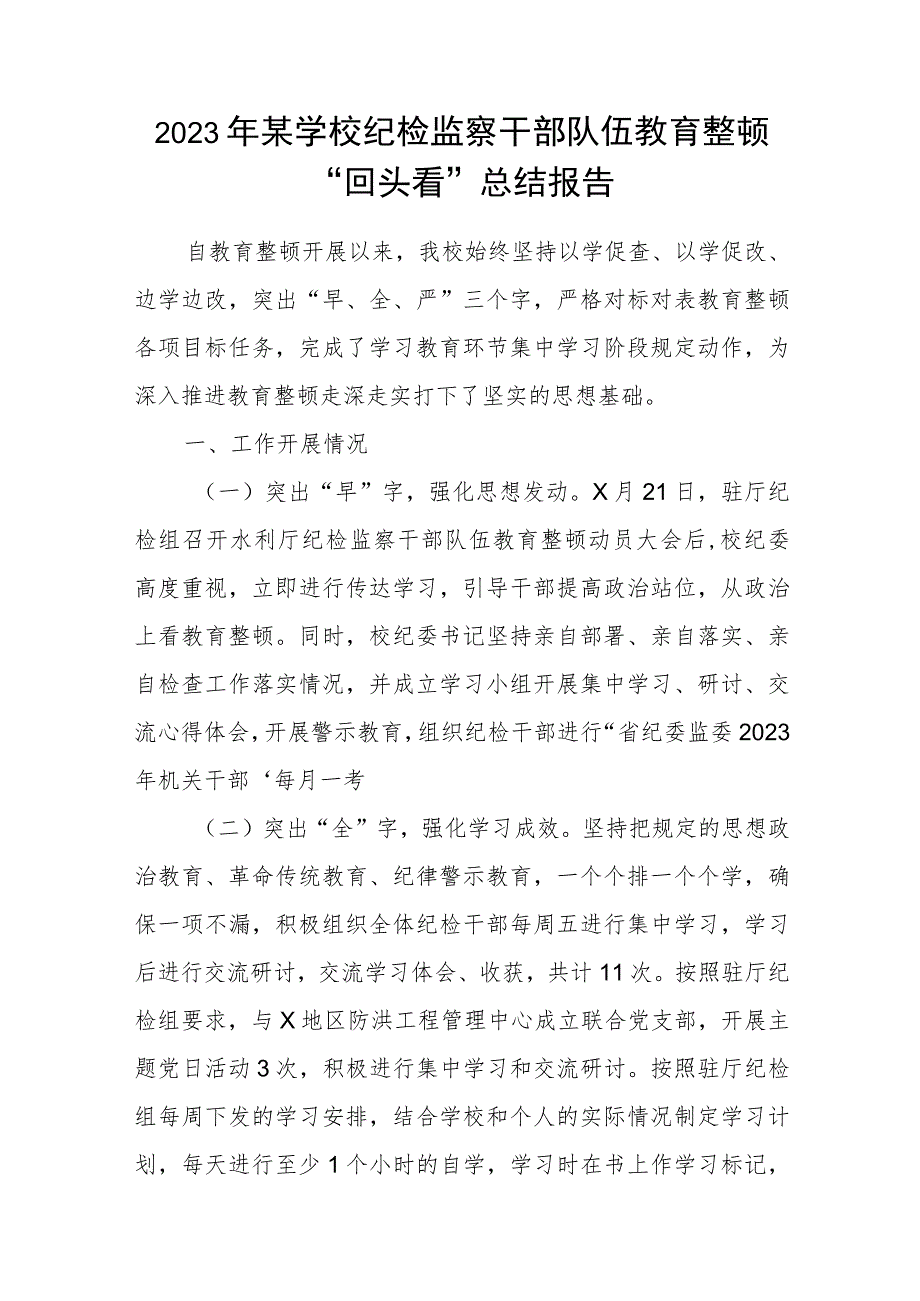 2023年某学校纪检监察干部队伍教育整顿
“回头看”总结报告
自教育整顿开展以来，我校始终坚持以学促查、以学促改、
边学边改，突出“早、全、严”三个字，严格对标对表教育整顿
各项目标任务，完成了学习教育环节集中学习阶段规定动作，为
深入推进教育整顿走深走实打下了坚实的思想基础。
一、工作开展情况
（一）突出“早”字，强化思想发动。X月21日，驻厅纪
检组召开水利厅纪检监察干部队伍教育整顿动员大会后,校纪委
高度重视，立即进行传达学习，引导干部提高政治站位，从政治
上看教育整顿。同时，校纪委书记坚持亲自部署、亲自落实、亲
自检查工作落实情况，并成立学习小组开展集中学习、研讨、交
流心得体会,开展警示教育,组织纪检干部进行“省纪委监委2023
年机关干部‘每月一考
（二）突出“全”字，强化学习成效。坚持把规定的思想政
治教育、革命传统教育、纪律警示教育，一个个排一个个学，确
保一项不漏，积极组织全体纪检干部每周五进行集中学习，学习
后进行交流研讨，交流学习体会、收获，共计11次。按照驻厅纪
检组要求，与X地区防洪工程管理中心成立联合党支部，开展主
题党日活动3次，积极进行集中学习和交流研讨。按照驻厅纪检
组每周下发的学习安排，结合学校和个人的实际情况制定学习计
划，每天进行至少1个小时的自学，学习时在书上作学习标记，